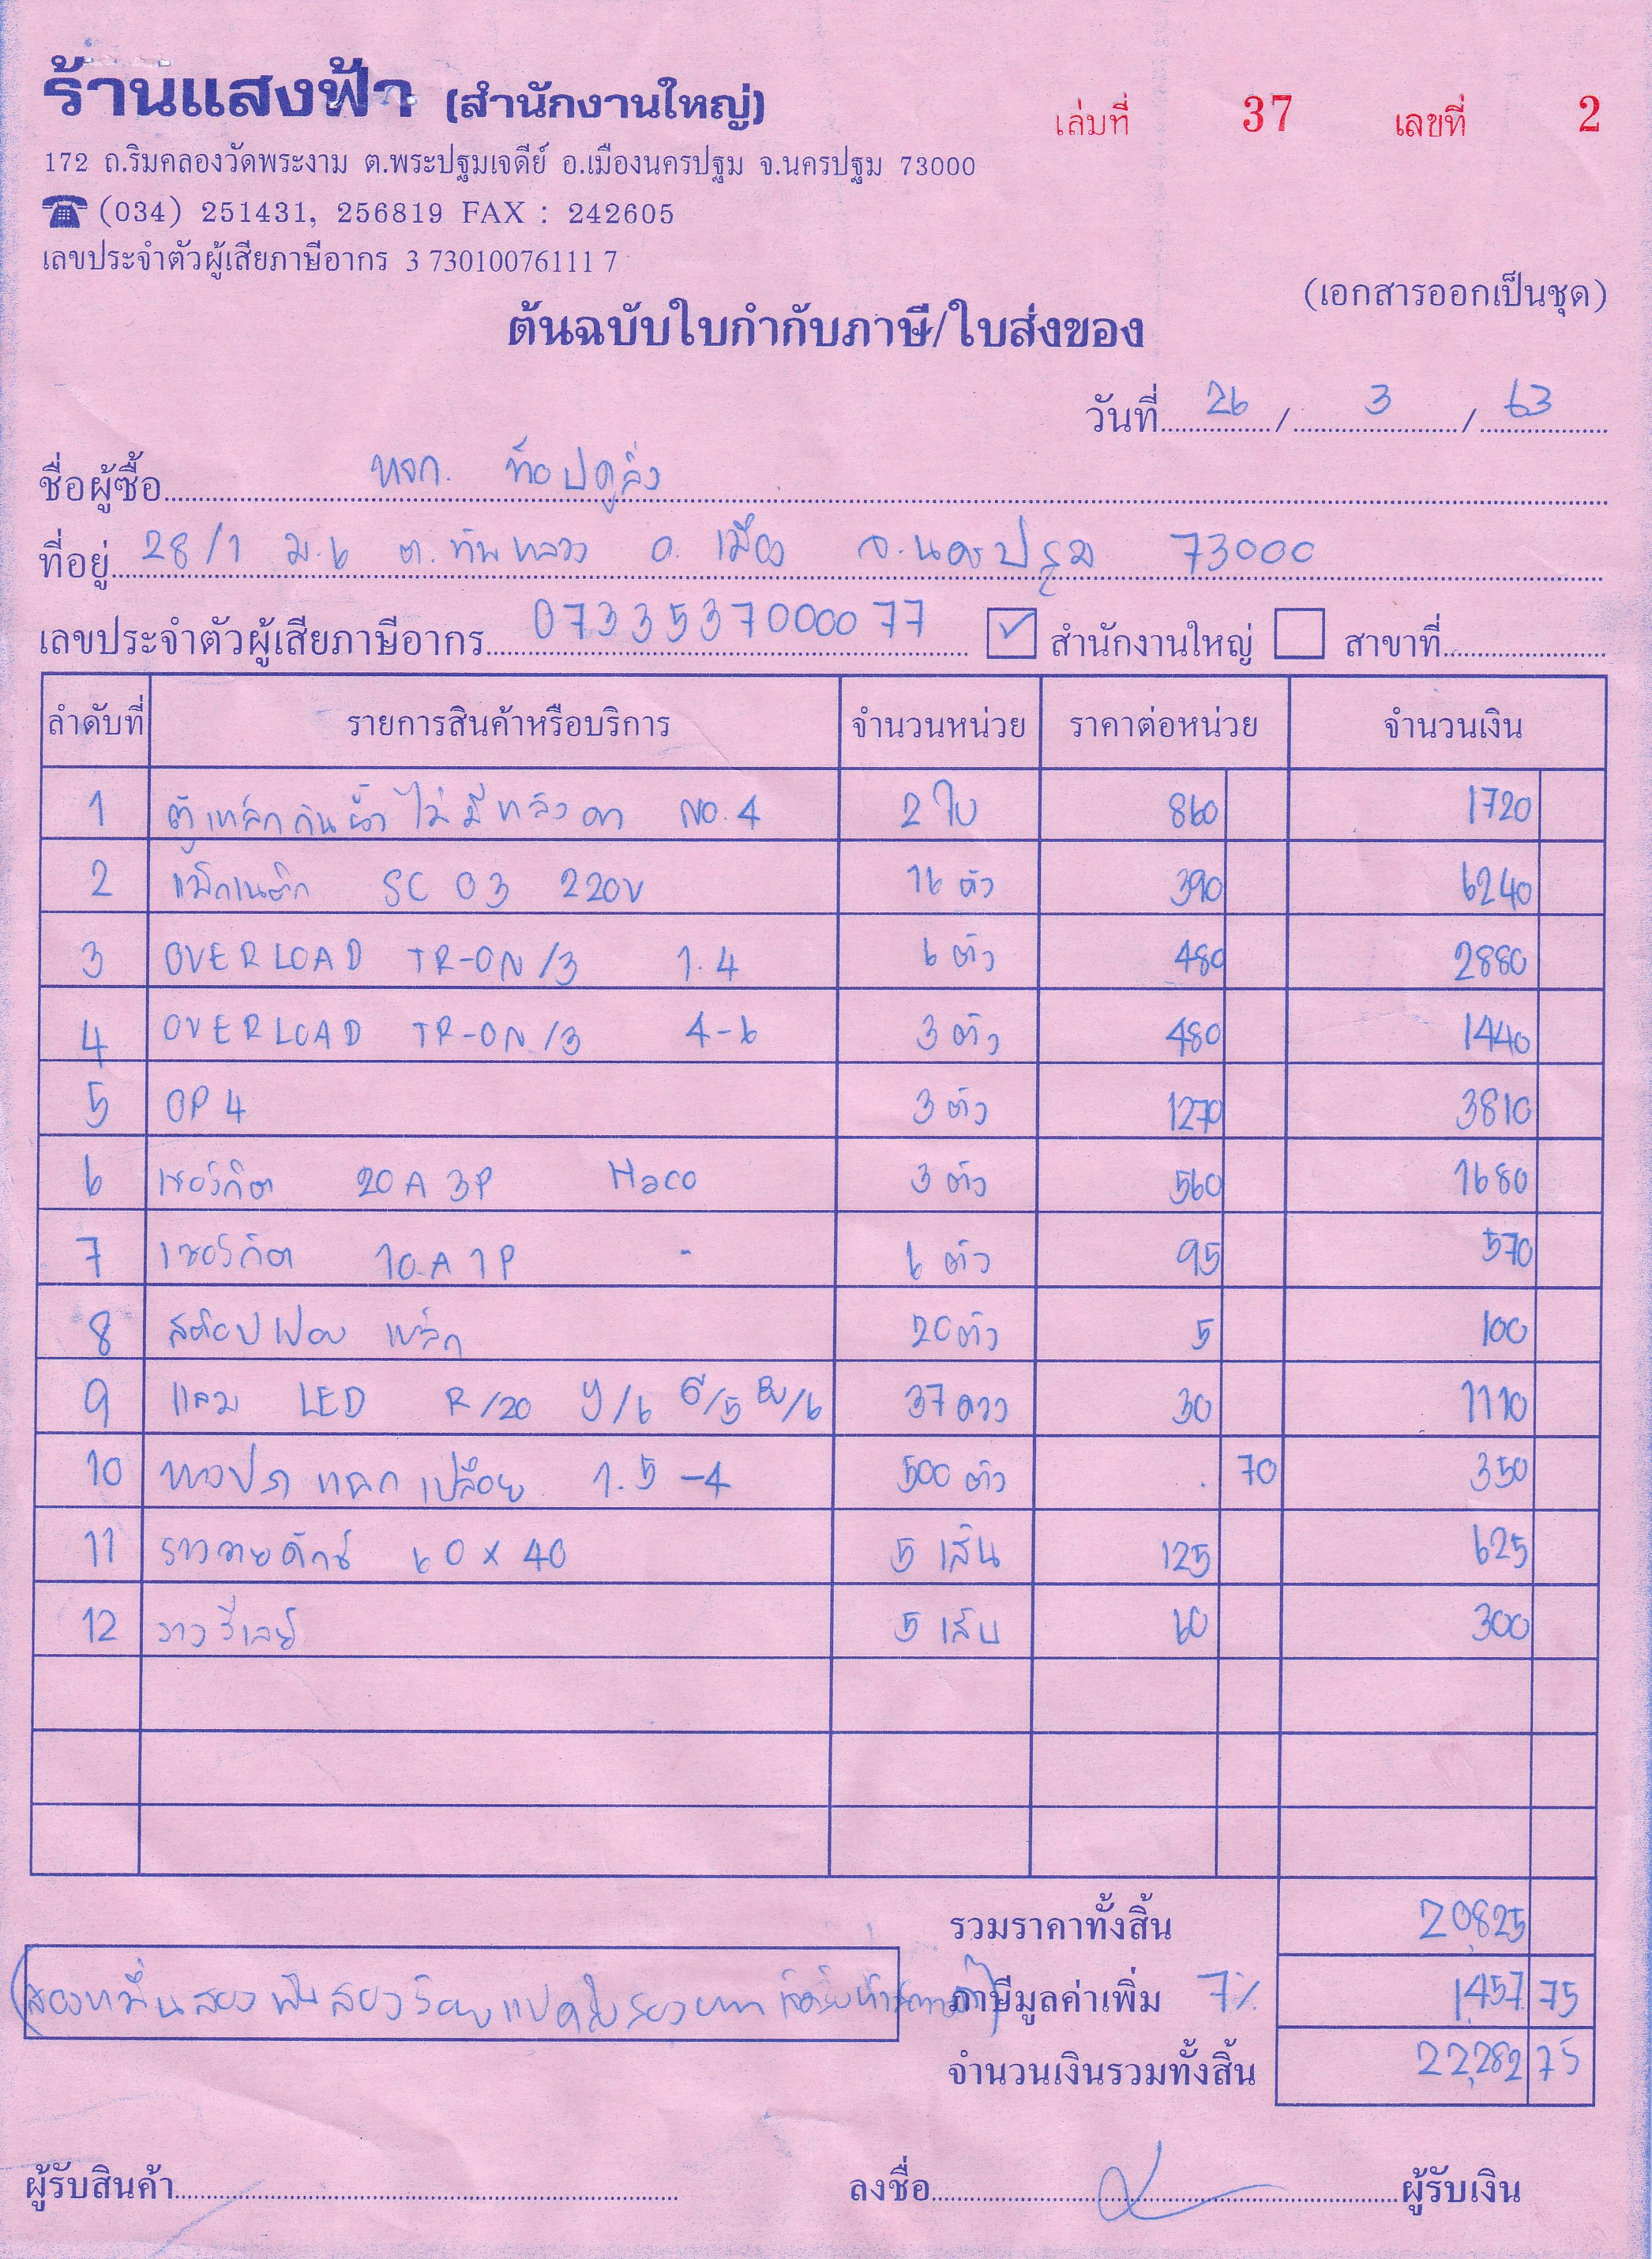 ร้านแสงฟ้า (สำนักงานใหญ่)
เล่มที่ 37 เลขที่ 2
172 ถ.ริมคลองวัดพระงาม ต.พระปฐมเจดีย์ อ.เมืองนครปฐม จ.นครปฐม 73000
(034) 251431, 256819 FAX : 242605
เลขประจำตัวผู้เสียภาษีอากร 3 7301007611 1 7
(เอกสารออกเป็นชุด)
ต้นฉบับใบกำกับภาษี/ใบส่งของ
วันที่ 26 / 3 / 63
ชื่อผู้ซื้อ หจก. ท็อปคูลิ่ง
ที่อยู่ 28/1 ม.6 ต.ทัพหลวง อ.เมือง จ.นครปฐม 73000
เลขประจำตัวผู้เสียภาษีอากร 0733537000077 สำนักงานใหญ่ สาขาที่
ลำดับที่ รายการสินค้าหรือบริการ จำนวนหน่วย ราคาต่อหน่วย จำนวนเงิน
1 ตู้เหล็กกันน้ำ ไม่มีหลังคา NO.4 2 ใบ 860 1720
2 แม็กเนติก SC 03 220V 16 ตัว 390 6240
3 OVERLOAD TR-ON/3 1.4 6 ตัว 480 2880
4 OVERLOAD TR-ON/3 4-6 3 ตัว 480 1440
5 OP 4 3 ตัว 1270 3810
6 เซอร์กิต 20A 3P Haco 3 ตัว 560 1680
7 เซอร์กิต 10A 1P - 6 ตัว 95 570
8 สต๊อปเปอร์ เหล็ก 20 ตัว 5 100
9 แลมป LED R/20 Y/6 G/5 /6 37 ดวง 30 1110
10 หางปลา แฉก เปลือย 1.5-4 500 ตัว . 70 350
11 รางวายดักช์ 60 x 40 5 เส้น 125 625
12 รางรีเลย์ 5 เส้น 60 300
รวมราคาทั้งสิ้น 20,825
(สองหมื่นสองพันสองร้อยแปดสิบสองบาทเจ็ดสิบห้าสตางค์) ภาษีมูลค่าเพิ่ม 7% 1,457 75
จำนวนเงินรวมทั้งสิ้น 22,282 75
ผู้รับสินค้า ลงชื่อ ผู้รับเงิน